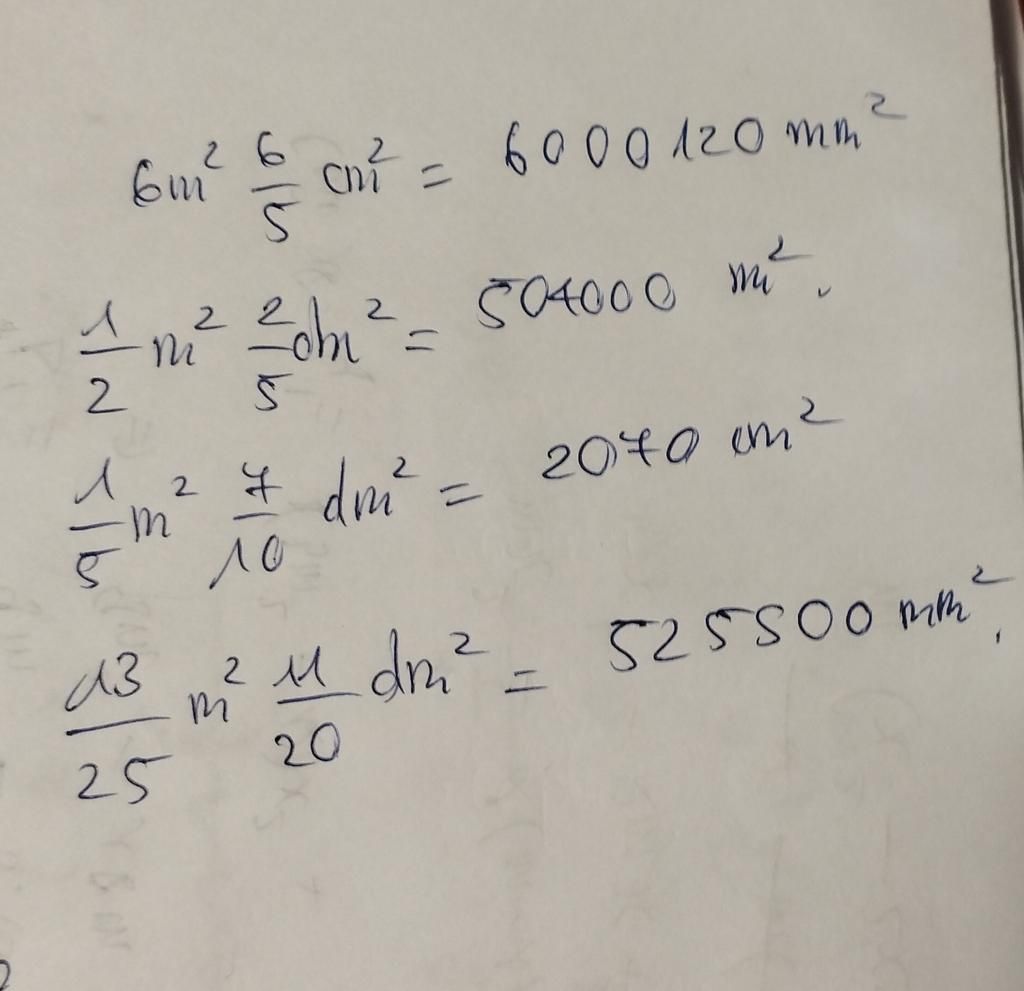 6m² 6/5 cm² = 6000120 mm²
1/2 m² 2/5 dm² = 504000 m².
1/5 m² 7/10 dm² = 2070 cm²
13/25 m² 11/20 dm² = 525500 mm².